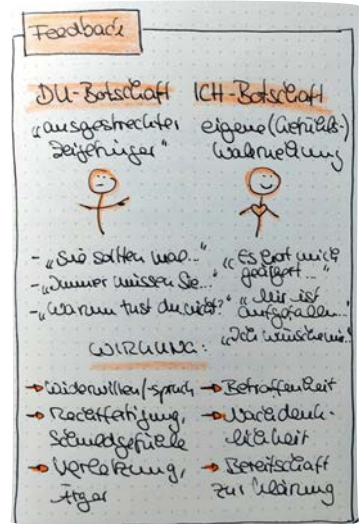 Feedback
DU-Botschaft
"ausgestreckter
Zeigefinger"
- "Sie sollten mal..."
- "Immer müssen Sie..."
- "Warum tust du nicht?"
ICH-Botschaft
eigene (Gefühls-)
Wahrnehmung
"Es hat mich
geärgert..."
"Mir ist
aufgefallen..."
"Ich wünsche mir.."
WIRKUNG:
→ Widerwillen/-spruch
→ Rechtfertigung,
Schuldgefühle
→ Verletzung,
Ärger
→ Betroffenheit
→ Nachdenk-
lichkeit
→ Bereitschaft
zur Klärung